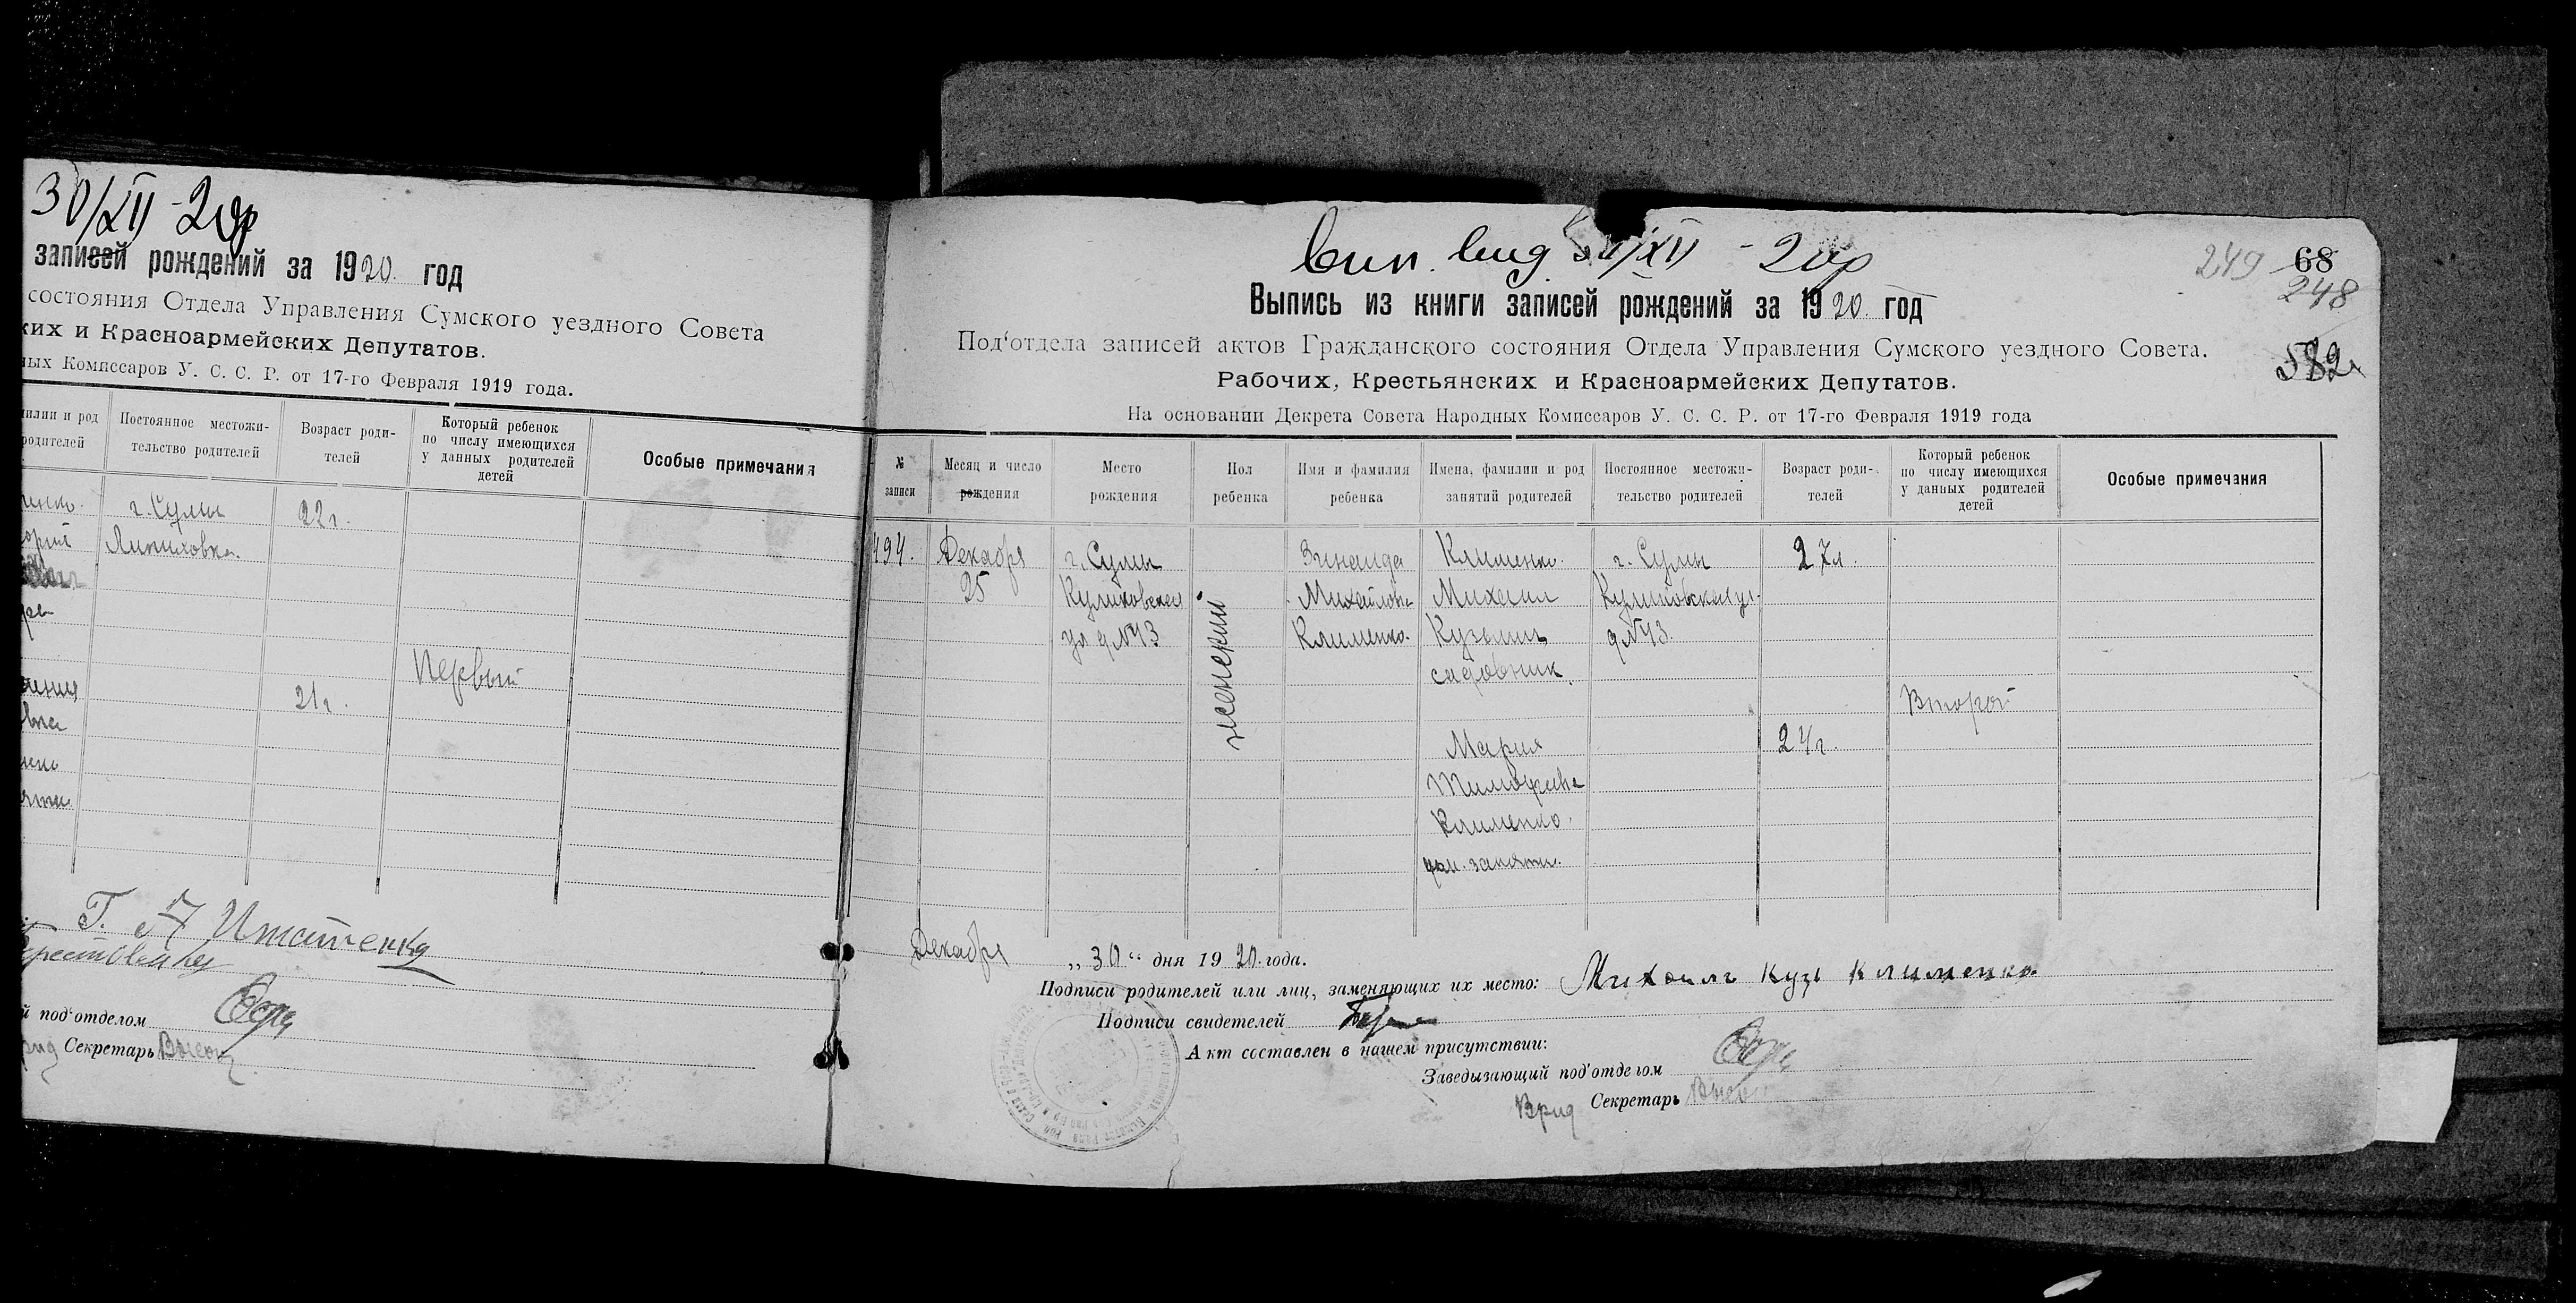 30/XII - 20р
записей рождений за 1920 год
состояния Отдела Управления Сумского уездного Совета
ких и Красноармейских Депутатов.
ных Комиссаров У. С. С. Р. от 17-го Февраля 1919 года.
милии и род родителей
Постоянное местожи-
тельство родителей
Возраст роди-
телей
Который ребенок
по числу имеющихся
у данных родителей
детей
Особые примечания
енко. г. Сумы 22 г.
орий
Первый
21 г.
под'отделом
Секретарь
/XII - 20р
249 68
248
582
Выпись из книги записей рождений за 1920 год
Под'отдела записей актов Гражданского состояния Отдела Управления Сумского уездного Совета.
Рабочих, Крестьянских и Красноармейских Депутатов.
На основании Декрета Совета Народных Комиссаров У. С. С. Р. от 17-го Февраля 1919 года
№
записи
Месяц и число
рождения
Место
рождения
Пол
ребенка
Имя и фамилия
ребенка
Имена, фамилии и род
занятий родителей
Постоянное местожи-
тельство родителей
Возраст роди-
телей
Который ребенок
по числу имеющихся
у данных родителей
детей
Особые примечания
494.
Декабря
25
г. Сумы
Куликовская
ул д №43
женский
Зинаида
Михайловна
Клименко.
Клименко.
Михаил
Кузьмич
садовник.
Мария
Тимофеевна
Клименко.
дом. занятия.
г. Сумы
Куликовская ул.
д №43.
27 л.
24 г.
Второй
Декабря „30“ дня 1920 года.
Подписи родителей или лиц, заменяющих их место: Михаилъ Кузь Клименко
Подписи свидетелей
Акт составлен в нашем присутствии:
Заведывающий под'отделом
Врид Секретарь